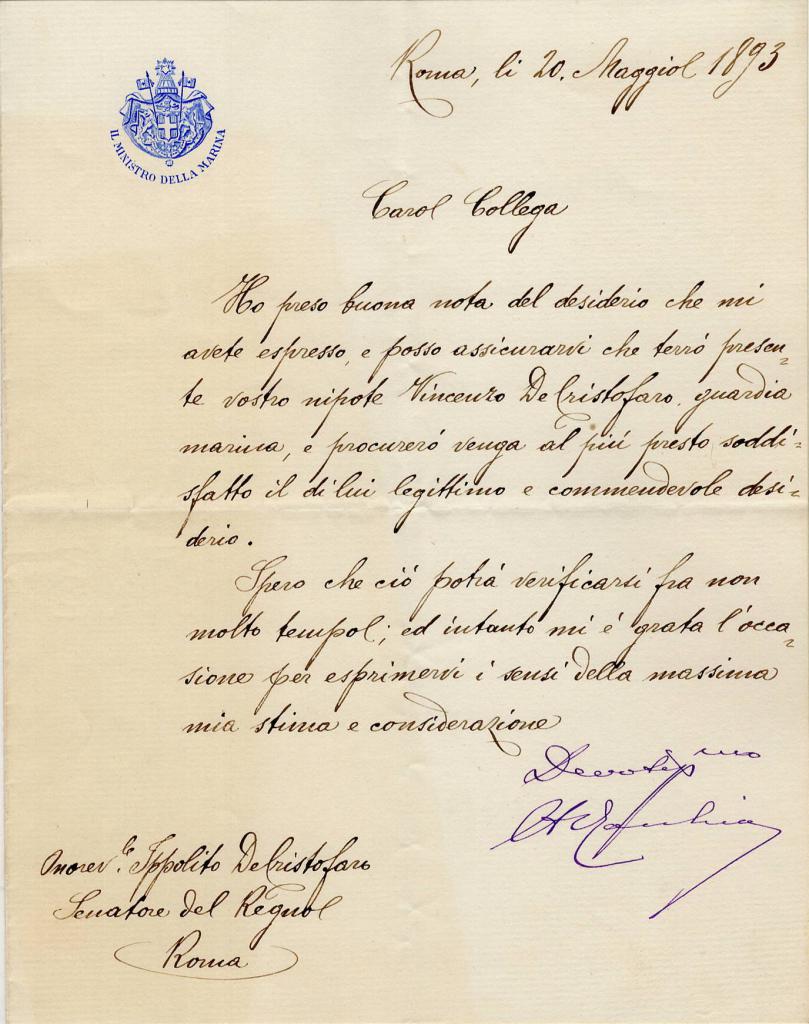 Roma, li 20. Maggio 1893
IL MINISTRO DELLA MARINA
Caro Collega
Ho preso buona nota del desiderio che mi
avete espresso, e posso assicurarvi che terrò presen-
te vostro nipote Vincenzo De Cristofaro, guardia
marina, e procurerò venga al più presto soddi=
sfatto il di lui legittimo e commendevole desi=
derio.
Spero che ciò potrà verificarsi fra non
molto tempo; ed intanto mi è grata l'occa=
sione per esprimervi i sensi della massima
mia stima e considerazione
Devotissmo
Onorev.le Ippolito De Cristofaro
Senatore del Regno
Roma